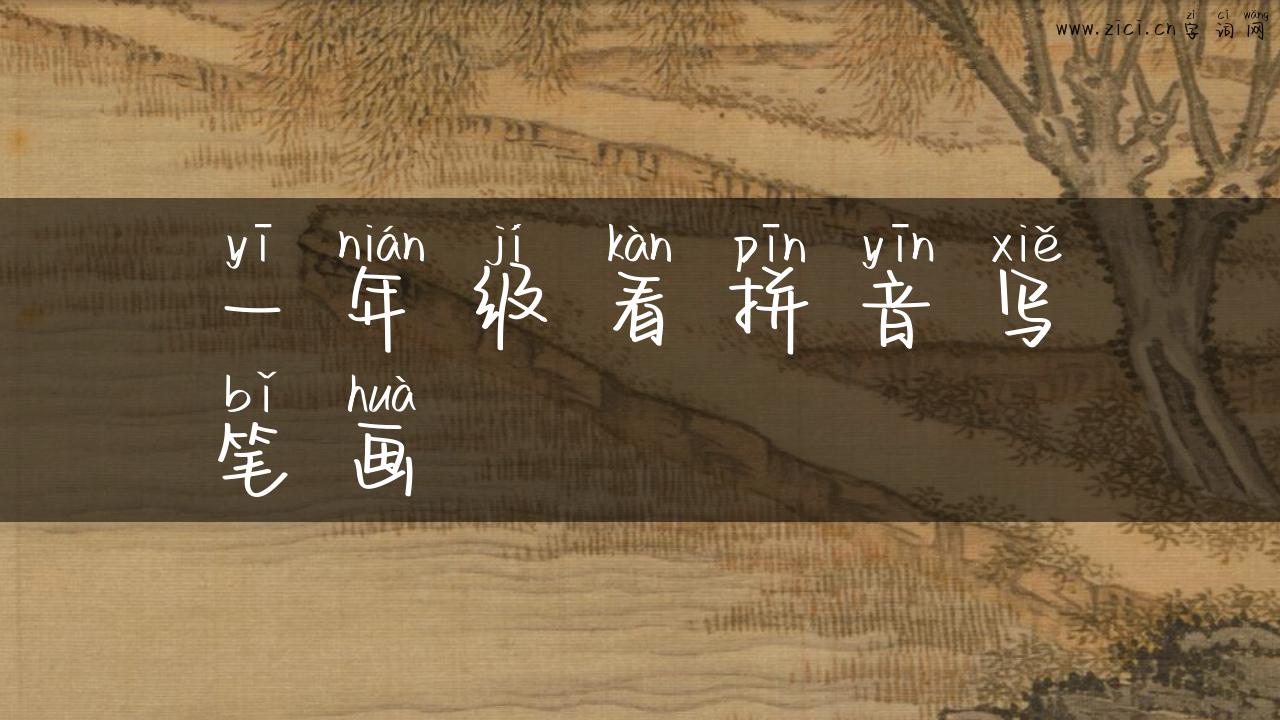 zì cí wǎng
www.zici.cn字词网
yī nián jí kàn pīn yīn xiě
一年级看拼音写
bǐ huà
笔画